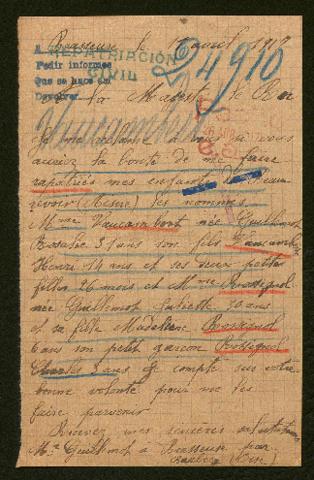 Brasseuse le 1 avril 1917
REPATRIACIÓN
CIVIL
Pedir informes
Que se hace en
Devolver
24910
A sa Majesté le Roi
Vaucambert
Je vous demande à vous si vous
auriez la bonté de me faire
rapatriés mes enfants de Beau
revoir (Aisne) Ses nommés
Mme Vaucambert née Guillemot
Rosalie 31 ans son fils Vaucamber
Henri 14 ans et ses deux petites
filles 26 mois et Mme Rossignol
née Guillemot Juliette 30 ans
et sa fille Madeleine Rossignol
6 ans son petit garçon Rossignol
Charles 3 ans je compte sur votre
bonne volonté pour me les
faire parvenir
Recevez mes sincères salutations
Mr Guillemot à Brasseuse par
(Oise)